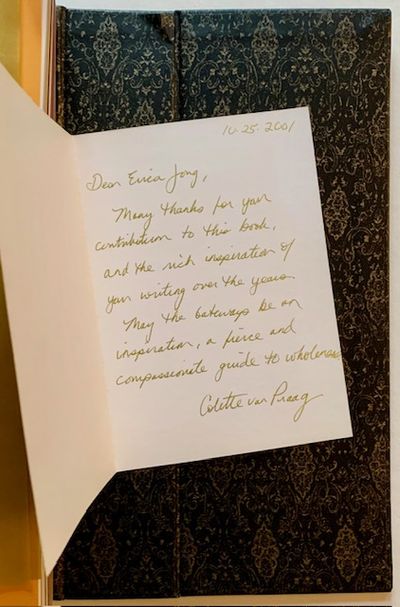 10-25-2001
Dear Erica Jong,
Many thanks for your
contribution to this book,
and the rich inspiration of
your writing over the years.
May the Gateways be an
inspiration, a fierce and
compassionate guide to wholeness
Colette van Praag